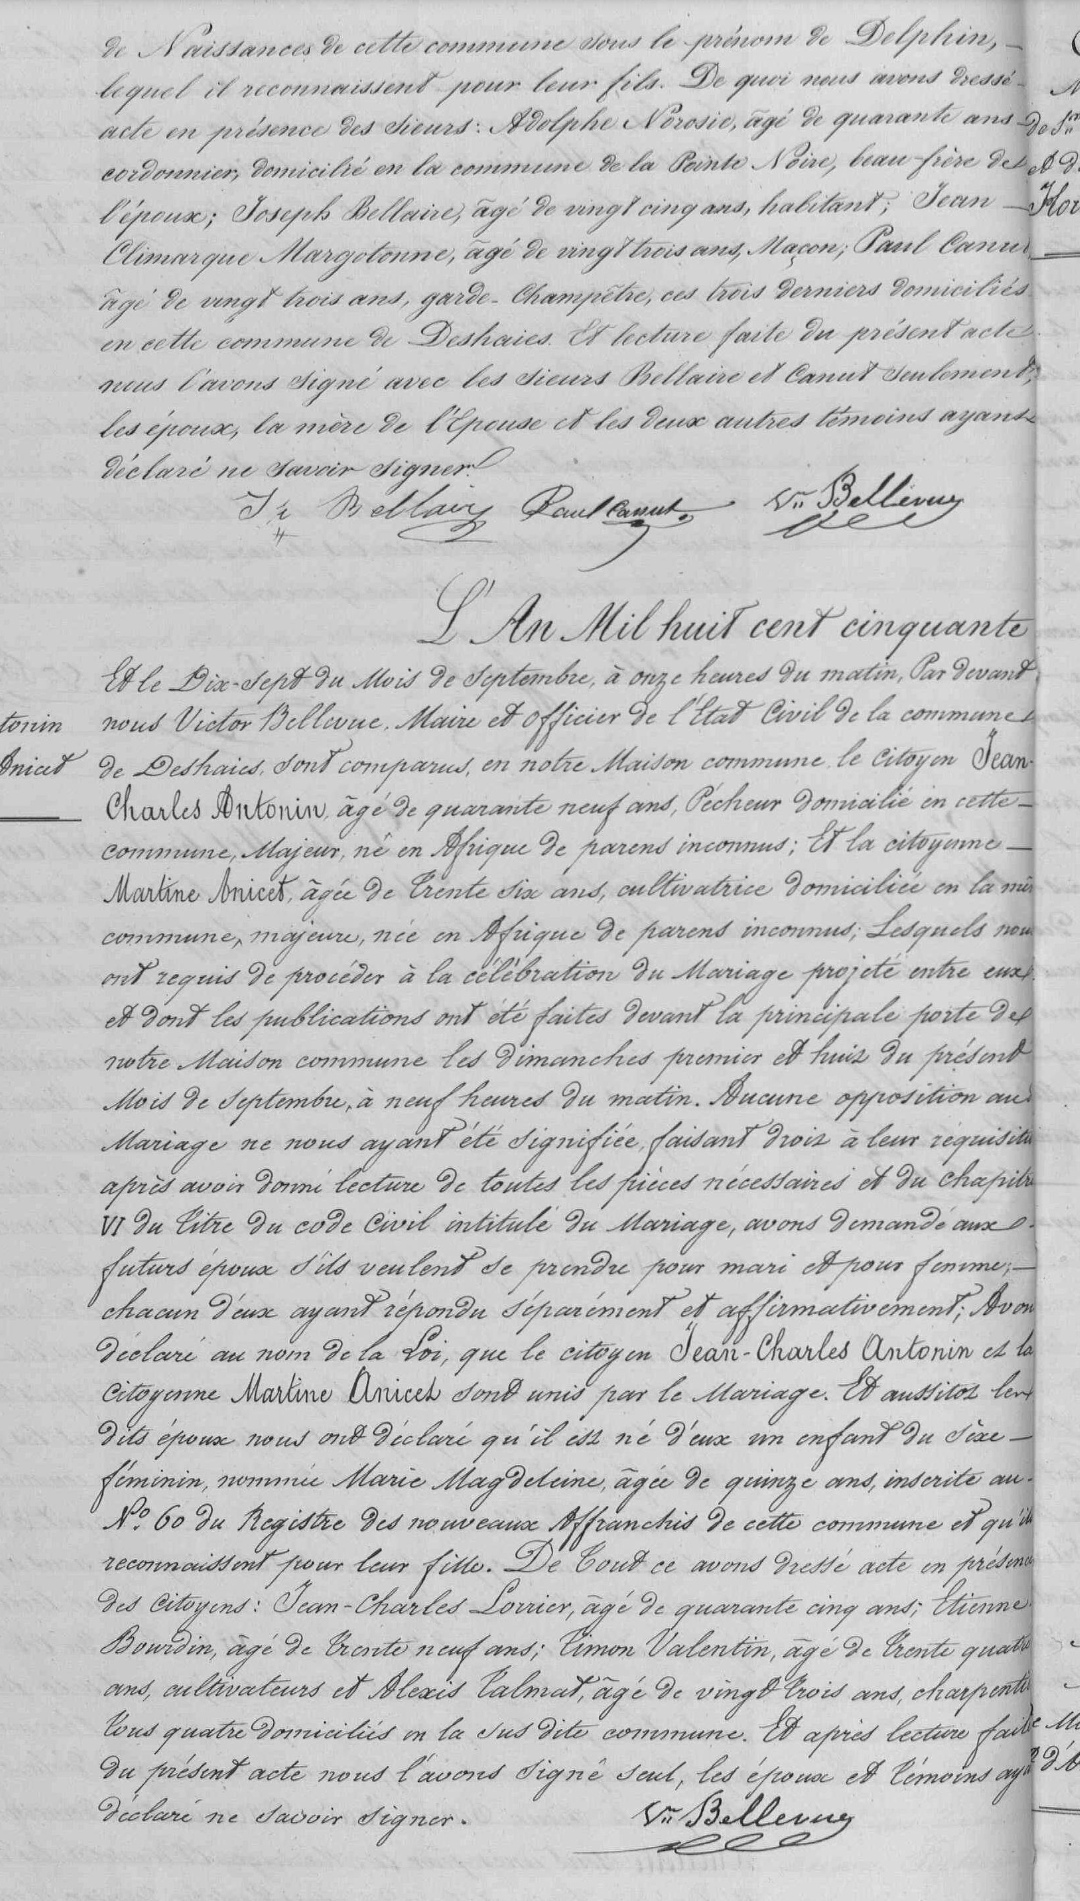 de Naissances de cette commune sous le prénom de Delphin, —
lequel il reconnaissent pour leur fils. De quoi nous avons dressé
acte en présence des Sieurs: Adolphe Norosie, âgé de quarante ans
cordonnier, domicilié en la commune de la Pointe Noire, beau-frère de
l'époux; Joseph Bellaire, âgé de vingt cinq ans, habitant; Jean —
Climarque Margotonne, âgé de vingt trois ans, Maçon; Paul Canut
âgé de vingt trois ans, garde-Champêtre, ces trois derniers domiciliés
en cette commune de Deshaies. Et lecture faite du présent acte
nous l'avons signé avec les sieurs Bellaire et Canut seulement,
les époux, la mère de l'Epouse et les deux autres témoins ayant
déclaré ne savoir signer.
Jh Bellaire Paul Canut Vor Bellevue
L'An Mil huit cent cinquante
Et le Dix-sept du Mois de Septembre, à onze heures du matin, Par devant
nous Victor Bellevue, Maire et officier de l'Etat Civil de la commune
de Deshaies, sont comparus, en notre Maison commune le citoyen Jean-
Charles Antonin, âgé de quarante neuf ans, Pêcheur domicilié en cette —
commune, Majeur, né en Afrique de parens inconnus; Et la citoyenne —
Martine Anicet, âgée de trente six ans, cultivatrice domiciliée en la mê
commune, majeure, née en Afrique de parens inconnus; Lesquels nou
ont requis de procéder à la célébration du Mariage projeté entre eux
et dont les publications ont été faites devant la principale porte de
notre Maison commune les dimanches premier et huit du présent
Mois de Septembre, à neuf heures du matin. Aucune opposition au
Mariage ne nous ayant été signifiée, faisant droit à leur réquisiti
après avoir donné lecture de toutes les pièces nécessaires et du chapitre
VI du Titre du code Civil intitulé du Mariage, avons demandé aux
futurs époux s'ils veulent se prendre pour mari et pour femme; —
chacun d'eux ayant répondu séparément et affirmativement; Avon
déclaré au nom de la Loi, que le citoyen Jean-Charles Antonin et la
Citoyenne Martine Anicet sont unis par le Mariage. Et aussitot les
dits époux nous ont déclaré qu'il est né d'eux un enfant du sèxe —
féminin, nommée Marie Magdeleine, âgée de quinze ans, inscrite au
No. 60 du Registre des nouveaux Affranchis de cette commune et qu'ils
reconnaissent pour leur fille. De Tout ce avons dressé acte en présence
des Citoyens: Jean-Charles Lorrier, âgé de quarante cinq ans; Etienne
Bourdin, âgé de trente neuf ans; Timon Valentin, âgé de trente quatre
ans, cultivateurs et Alexis Talmat, âgé de vingt trois ans, charpentie
Tous quatre domiciliés en la sus dite commune. Et après lecture faite
du présent acte nous l'avons signé seul, les époux et témoins aya
déclaré ne savoir signer.
Vor Bellevue
tonin
Anicet